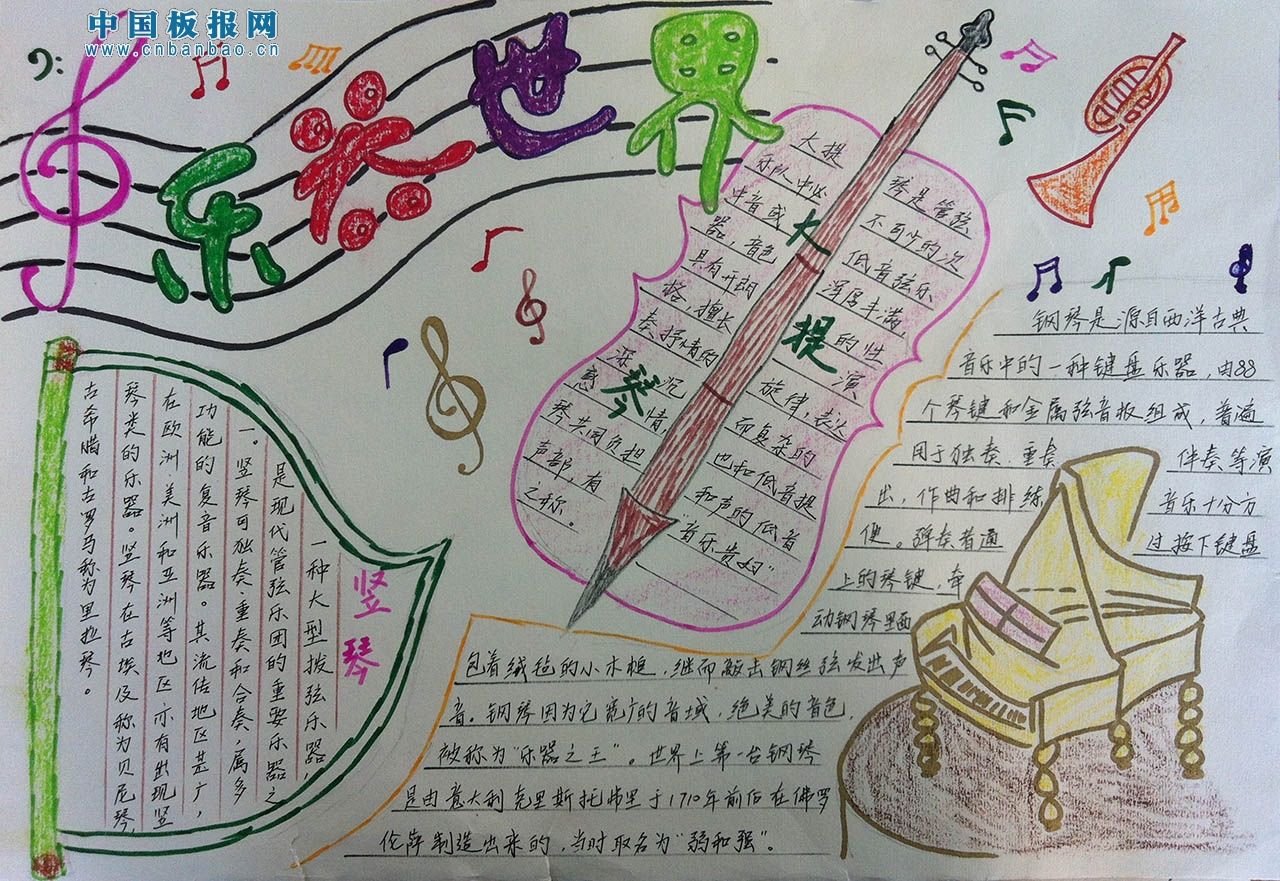 中国板报网
www.cnbanbao.cn
乐器世界
大提琴
大提琴是管弦
乐队中必不可少的次
中音或低音弦乐
器，音色浑厚丰满，
具有开朗的性
格，擅长演
奏抒情的旋律，表达
深沉而复杂的
感情，也和低音提
琴共同负担和声的低音
声部，有"音乐贵妇"
之称。
竖琴
一种大型拨弦乐器，
是现代管弦乐团的重要乐器之
一。竖琴可独奏、重奏和合奏，属多
功能的复音乐器。其流传地区甚广，
在欧洲美洲和亚洲等地区亦有出现竖
琴类的乐器。竖琴在古埃及称为贝尼琴，
古希腊和古罗马称为里拉琴。
钢琴是源自西洋古典
音乐中的一种键盘乐器，由88
个琴键和金属弦音板组成，普遍
用于独奏、重奏、伴奏等演
出，作曲和排练音乐十分方
便。弹奏者通过按下键盘
上的琴键，牵
动钢琴里面
包着绒毡的小木槌，继而敲击钢丝弦发出声
音。钢琴因为它宽广的音域，绝美的音色，
被称为"乐器之王"。世界上第一台钢琴
是由意大利克里斯托弗里于1710年前后在佛罗
伦萨制造出来的，当时取名为"弱和强"。